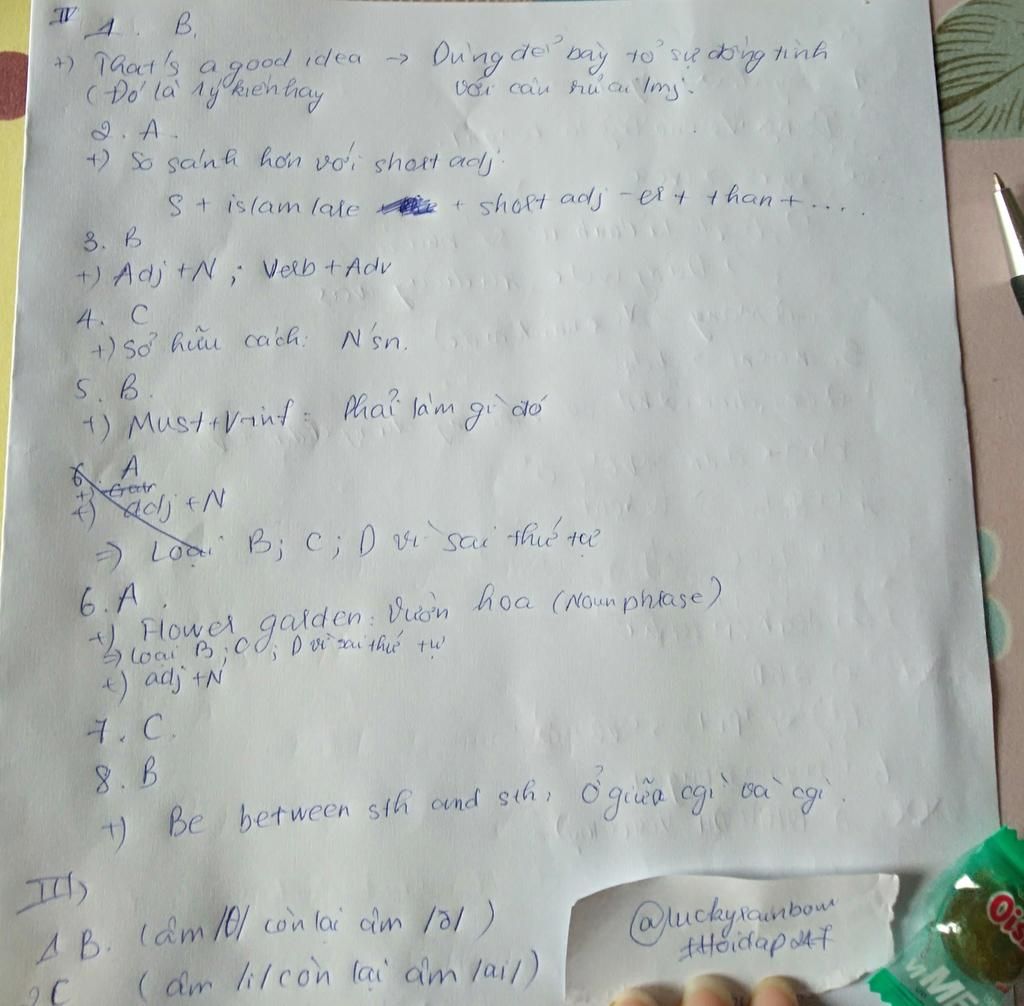 IV 1. B.
+) That's a good idea → Dùng để bày tỏ sự đồng tình
(Đó là 1 ý kiến hay với câu
2. A.
+) So sánh hơn với short adj.
S + is/am/are + short adj -er + than + ....
3. B
+) Adj + N ; Verb + Adv
4. C
+) Sở hữu cách: N's n.
5. B.
+) Must + V-inf : Phải làm gì đó
6. A
+) adj + N
=> Loại B; C; D vì sai thứ tự
6. A.
+) Flower garden: Vườn hoa (Noun phrase)
=> Loại B; C; D vì sai thứ tự
+) adj + N
7. C.
8. B
+) Be between sth and sth: Ở giữa cgì và cgì.
III)
1 B. (âm /θ/ còn lại âm /ð/ )
2 C (âm /i/ còn lại âm /ai/)
@luckyrainbow
#Hoidap247
Ois
MM